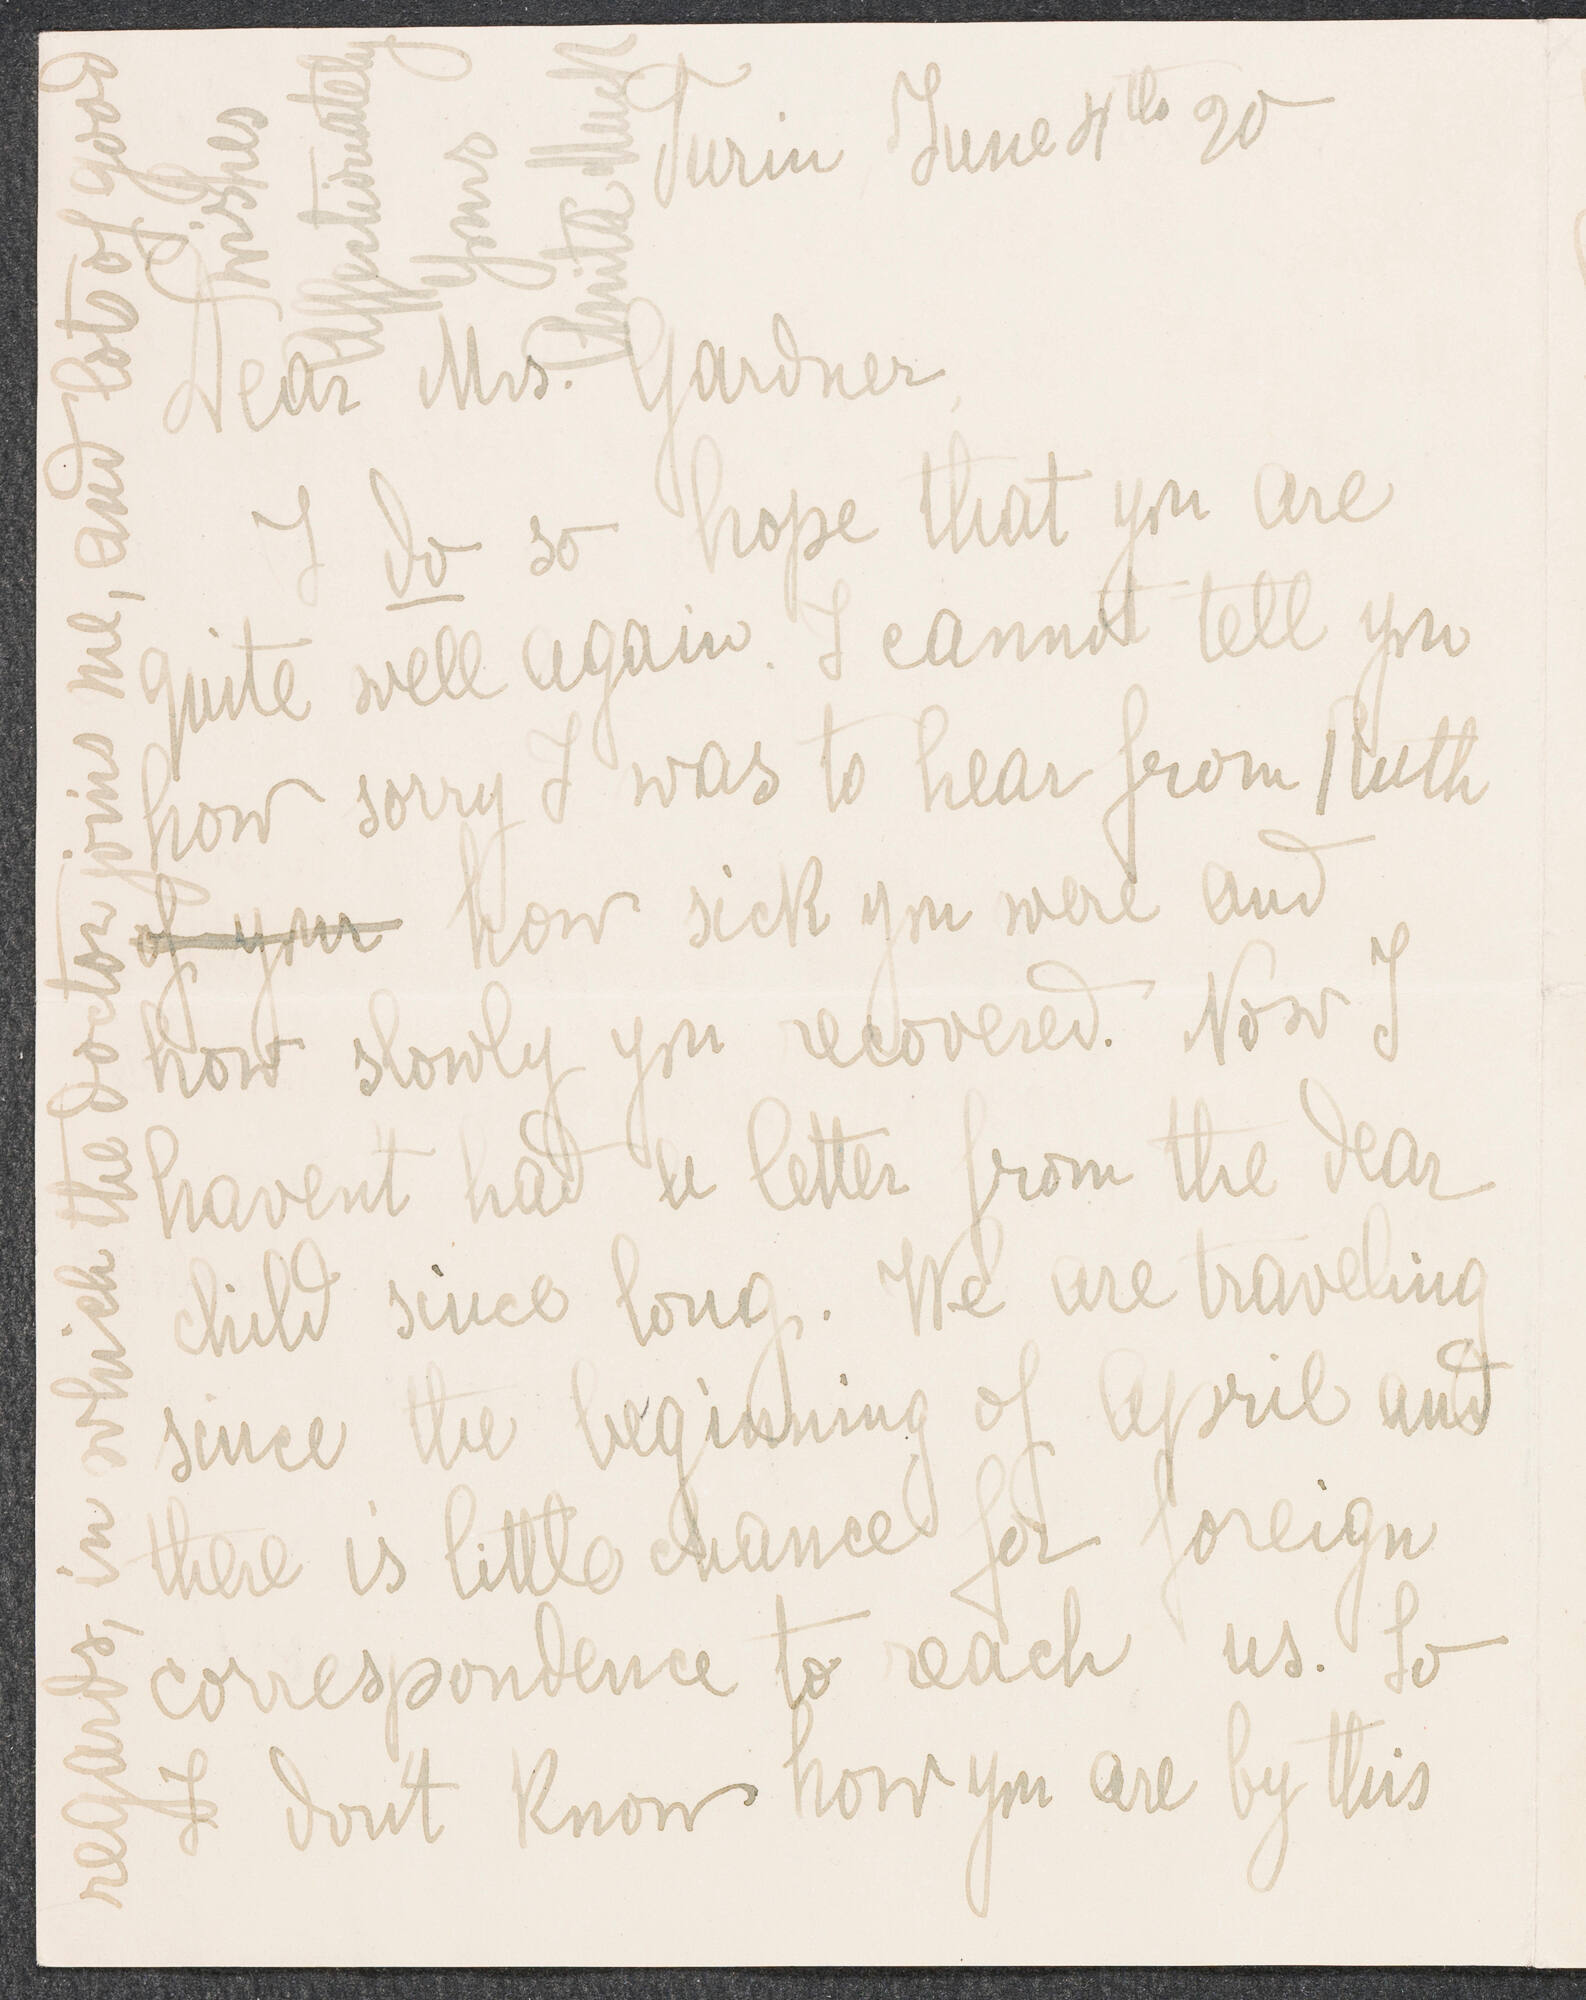 Turin June 4th 20
Dear Mrs. Gardner,
I do so hope that you are
quite well again. I cannot tell you
how sorry I was to hear from Ruth
of your how sick you were and
how slowly you recovered. Now I
havent had a letter from the dear
child since long. We are traveling
since the beginning of April and
there is little chance for foreign
correspondence to reach us. So
I don't know how you are by this
regards, in which the doctor joins me, and lots of good
wishes
Affectionately
Yours
Anita Muck